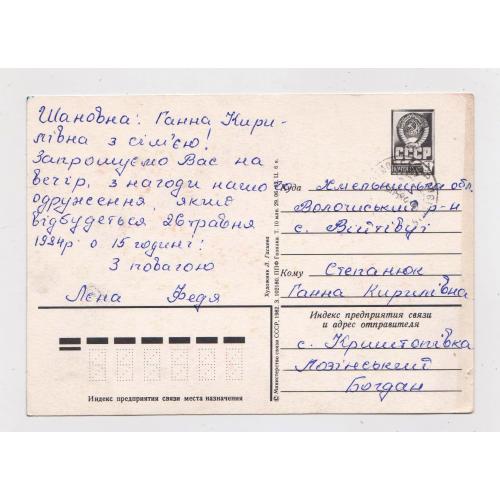 Шановна: Ганна Кири-
лівна з сім'єю!
Запрошуємо Вас на
вечір, з нагоди нашого
одруження, який
відбудеться 26 травня
1984р о 15 годині!
З повагою
Лєна Федя
СССР
Куда Хмельницька обл.
Волочиський р-н
с. Війтівці
Кому Степанюк
Ганна Кирилівна
Индекс предприятия связи
и адрес отправителя
с. Криштопівка
Лозінський
Богдан
Индекс предприятия связи места назначения
© Министерство связи СССР, 1982. З. 102180. ППФ Гознака. Т. 10 млн.